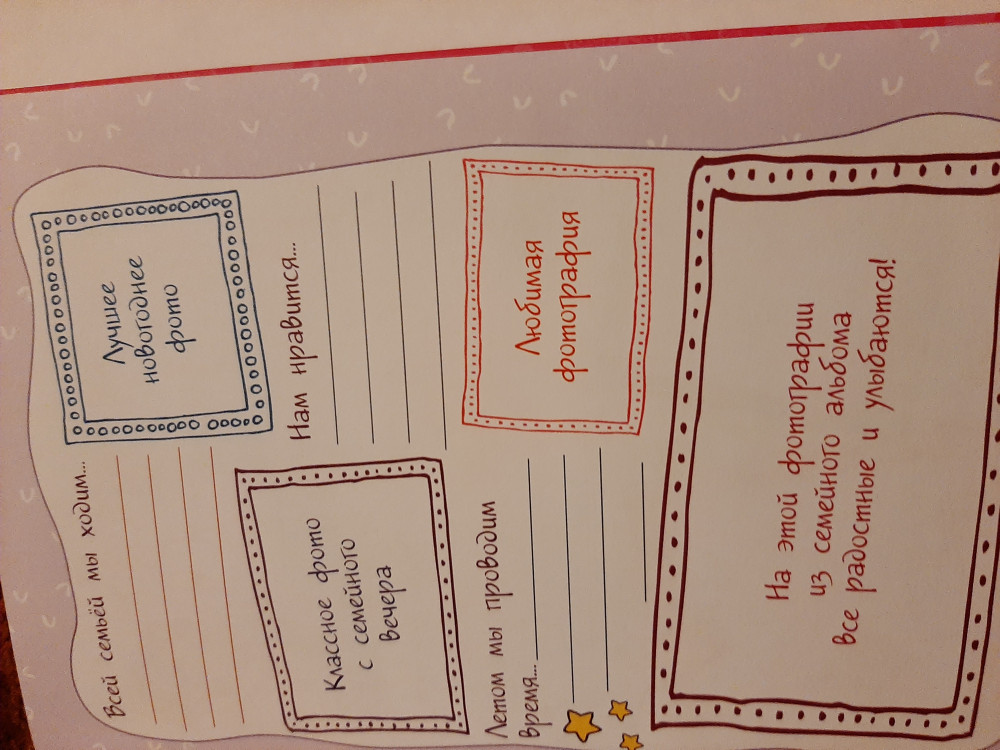 Всей семьёй мы ходим...
Лучшее
новогоднее
фото
Классное фото
с семейного
вечера
Нам нравится...
Летом мы проводим
время...
Любимая
фотография
На этой фотографии
из семейного альбома
все радостные и улыбаются!